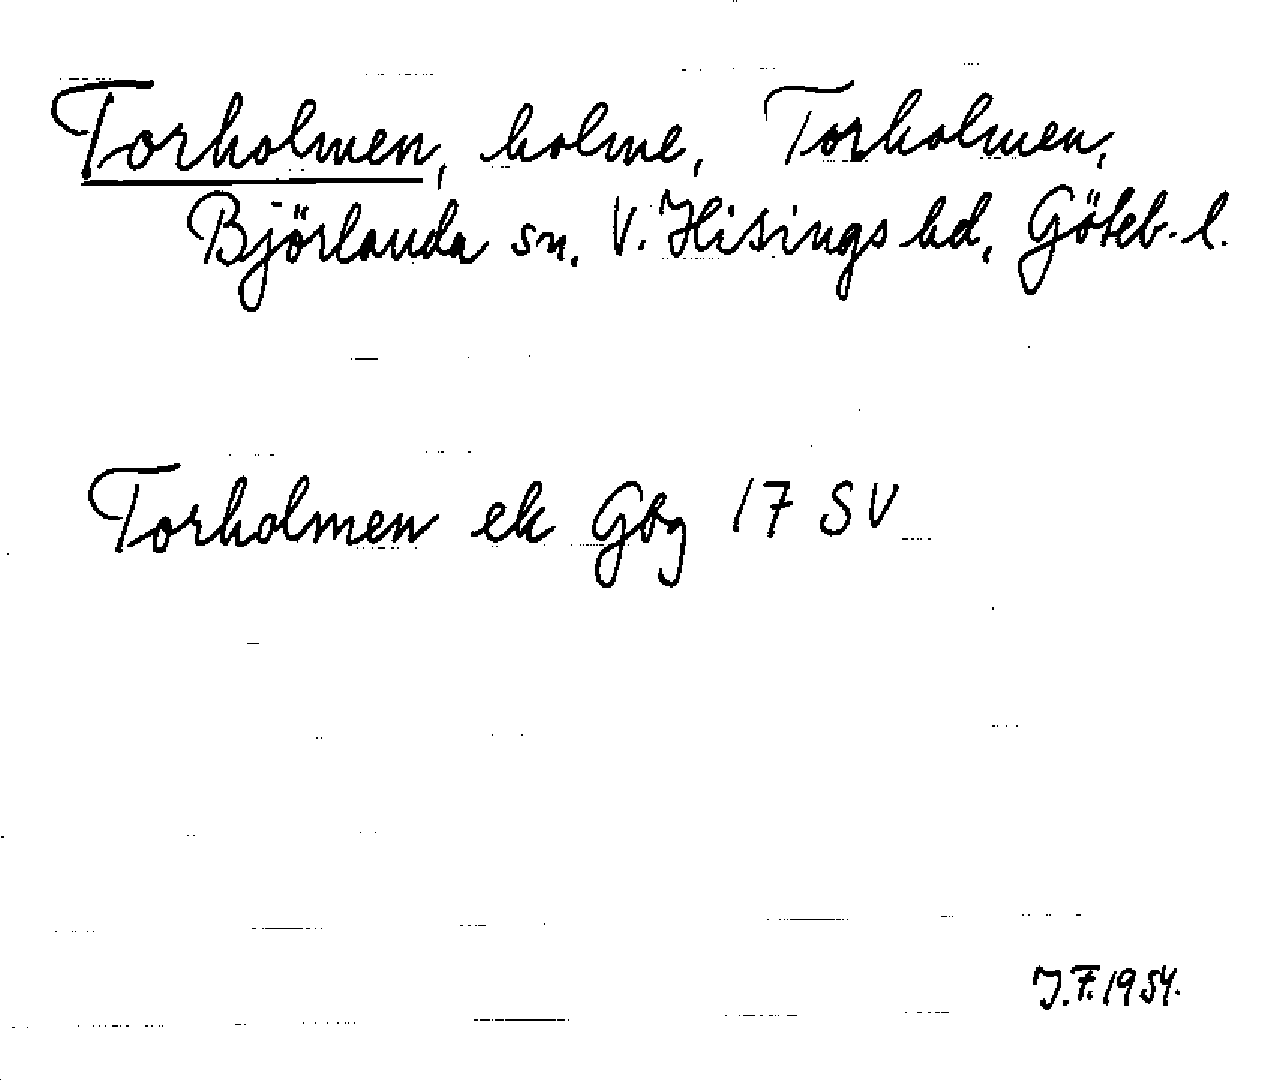 Torholmen, holme, Torholmen,
Björlanda sn. V. Hisings hd, Göteb. l.
Torholmen ek Gbg 17 SV
J.F. 1954.